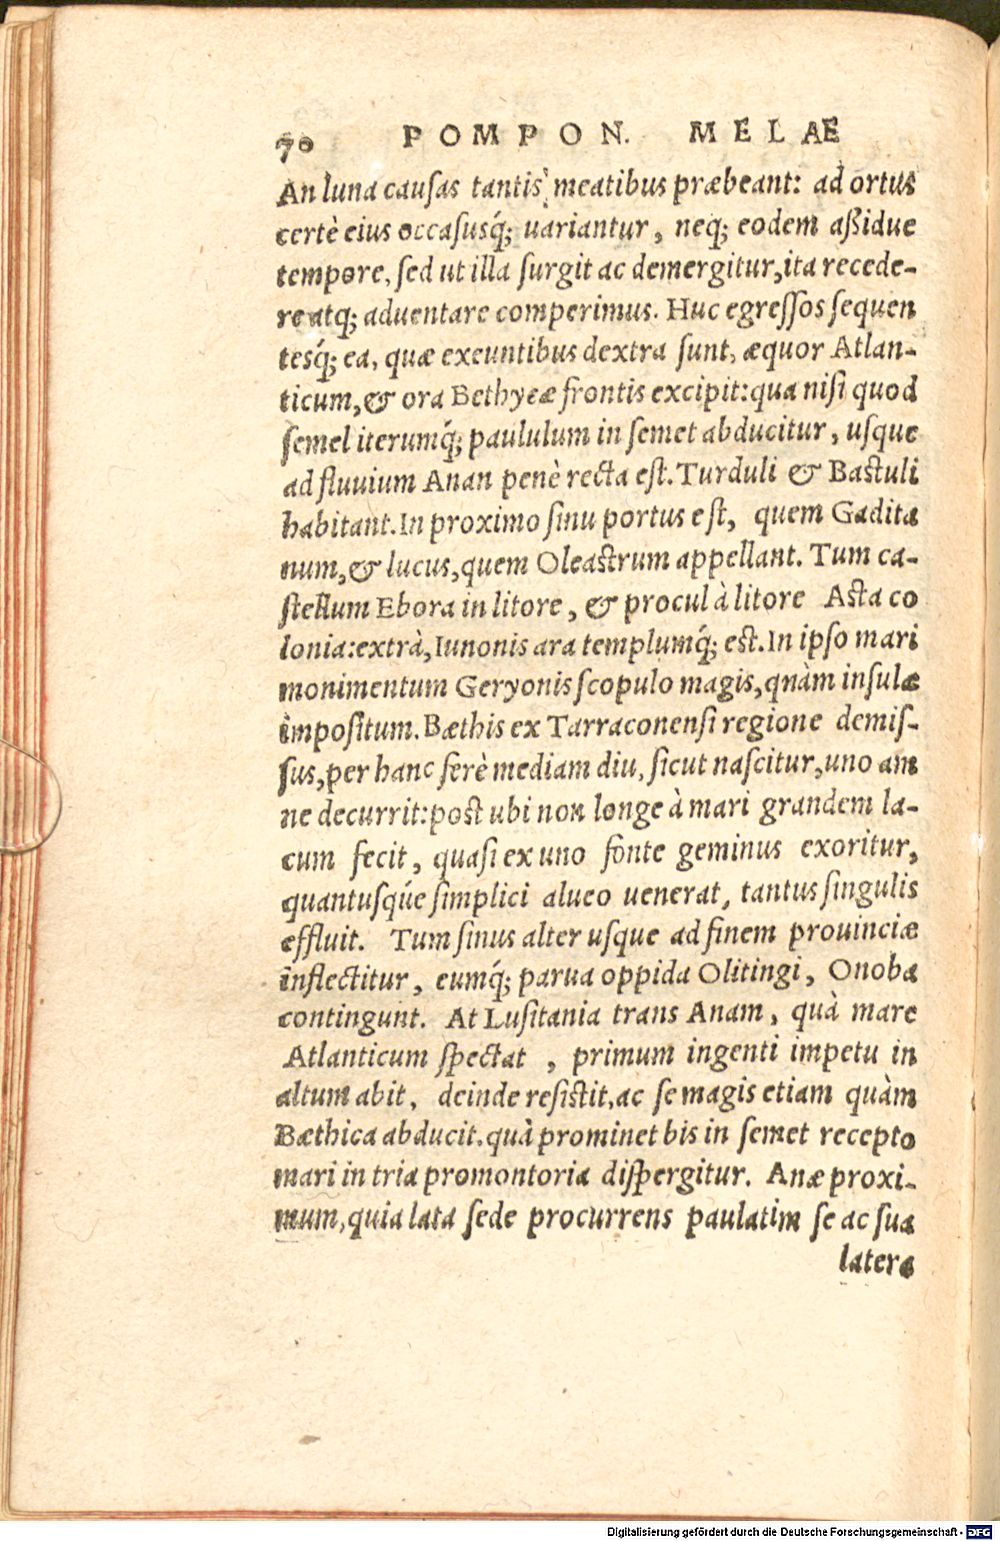 70 POMPON. MELAE
An luna cauſas tantis meatibus præbeant: ad ortus
certè eius occaſusq́; uariantur, neq; eodem aßidue
tempore, ſed ut illa ſurgit ac demergitur, ita recede-
re atq; aduentare comperimus. Huc egreſſos ſequen
tesq́; ea, quæ exeuntibus dextra ſunt, æquor Atlan-
ticum, & ora Bethyeæ frontis excipit: qua niſi quod
ſemel iterumq́; paululum in ſemet abducitur, uſque
ad fluuium Anan penè recta eſt. Turduli & Baſtuli
habitant. In proximo ſinu portus eſt, quem Gadita
num, & lucus, quem Oleaſtrum appellant. Tum ca-
ſtellum Ebora in litore, & procul à litore Aſta co
lonia: extrà, Iunonis ara templumq́; eſt. In ipſo mari
monimentum Geryonis ſcopulo magis, quàm inſulæ
impoſitum. Bæthis ex Tarraconenſi regione demiſ-
ſus, per hanc ferè mediam diu, ſicut naſcitur, uno am
ne decurrit: poſt ubi non longe à mari grandem la-
cum fecit, quaſi ex uno fonte geminus exoritur,
quantuſq́ue ſimplici alueo uenerat, tantus ſingulis
effluit. Tum ſinus alter uſque ad finem prouinciæ
inflectitur, eumq́; parua oppida Olitingi, Onoba
contingunt. At Luſitania trans Anam, quà mare
Atlanticum ſpectat, primum ingenti impetu in
altum abit, deinde reſiſtit, ac ſe magis etiam quàm
Bæthica abducit. quà prominet bis in ſemet recepto
mari in tria promontoria diſpergitur. Anæ proxi-
mum, quia lata ſede procurrens paulatim ſe ac ſua
latera
Digitalisierung gefördert durch die Deutsche Forschungsgemeinschaft - DFG